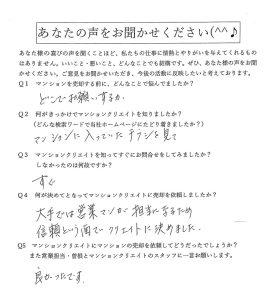 あなたの声をお聞かせください(^^♪
あなた様の喜びの声を聞くことほど、私たちの仕事に情熱とやりがいを与えてくれるもの
はありません。いいこと・悪いこと、どんなことでも結構です。ぜひ、あなた様の声をお聞
かせください。ご意見をお聞かせいただき、今後の活動に反映したいと考えております。
Q1 マンションを売却する前に、どんなことで悩んでましたか？
どこでお願いするか
Q2 何がきっかけでマンションクリエイトを知りましたか？
（どんな検索ワードで当社ホームページにたどり着きましたか？）
マンションに入っていたチラシを見て
Q3 マンションクリエイトを知ってすぐにお問合せをしてみましたか？
しなかったのは何故ですか？
すぐ
Q4 何が決めてとなってマンションクリエイトに売却を依頼しましたか？
大手では営業マンが担当になるため
信頼という面でクリエイトに決めました。
Q5 マンションクリエイトにマンションの売却を依頼してどうだったでしょうか？
また営業担当・曽根とマンションクリエイトのスタッフに一言お願いします。
良かったです。